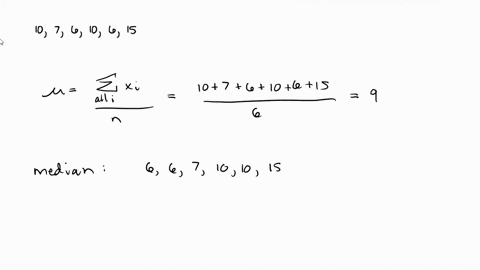 10, 7, 6, 10, 6, 15
μ = Σ xᵢ / n = 10+7+6+10+6+15 / 6 = 9
all i
median : 6, 6, 7, 10, 10, 15